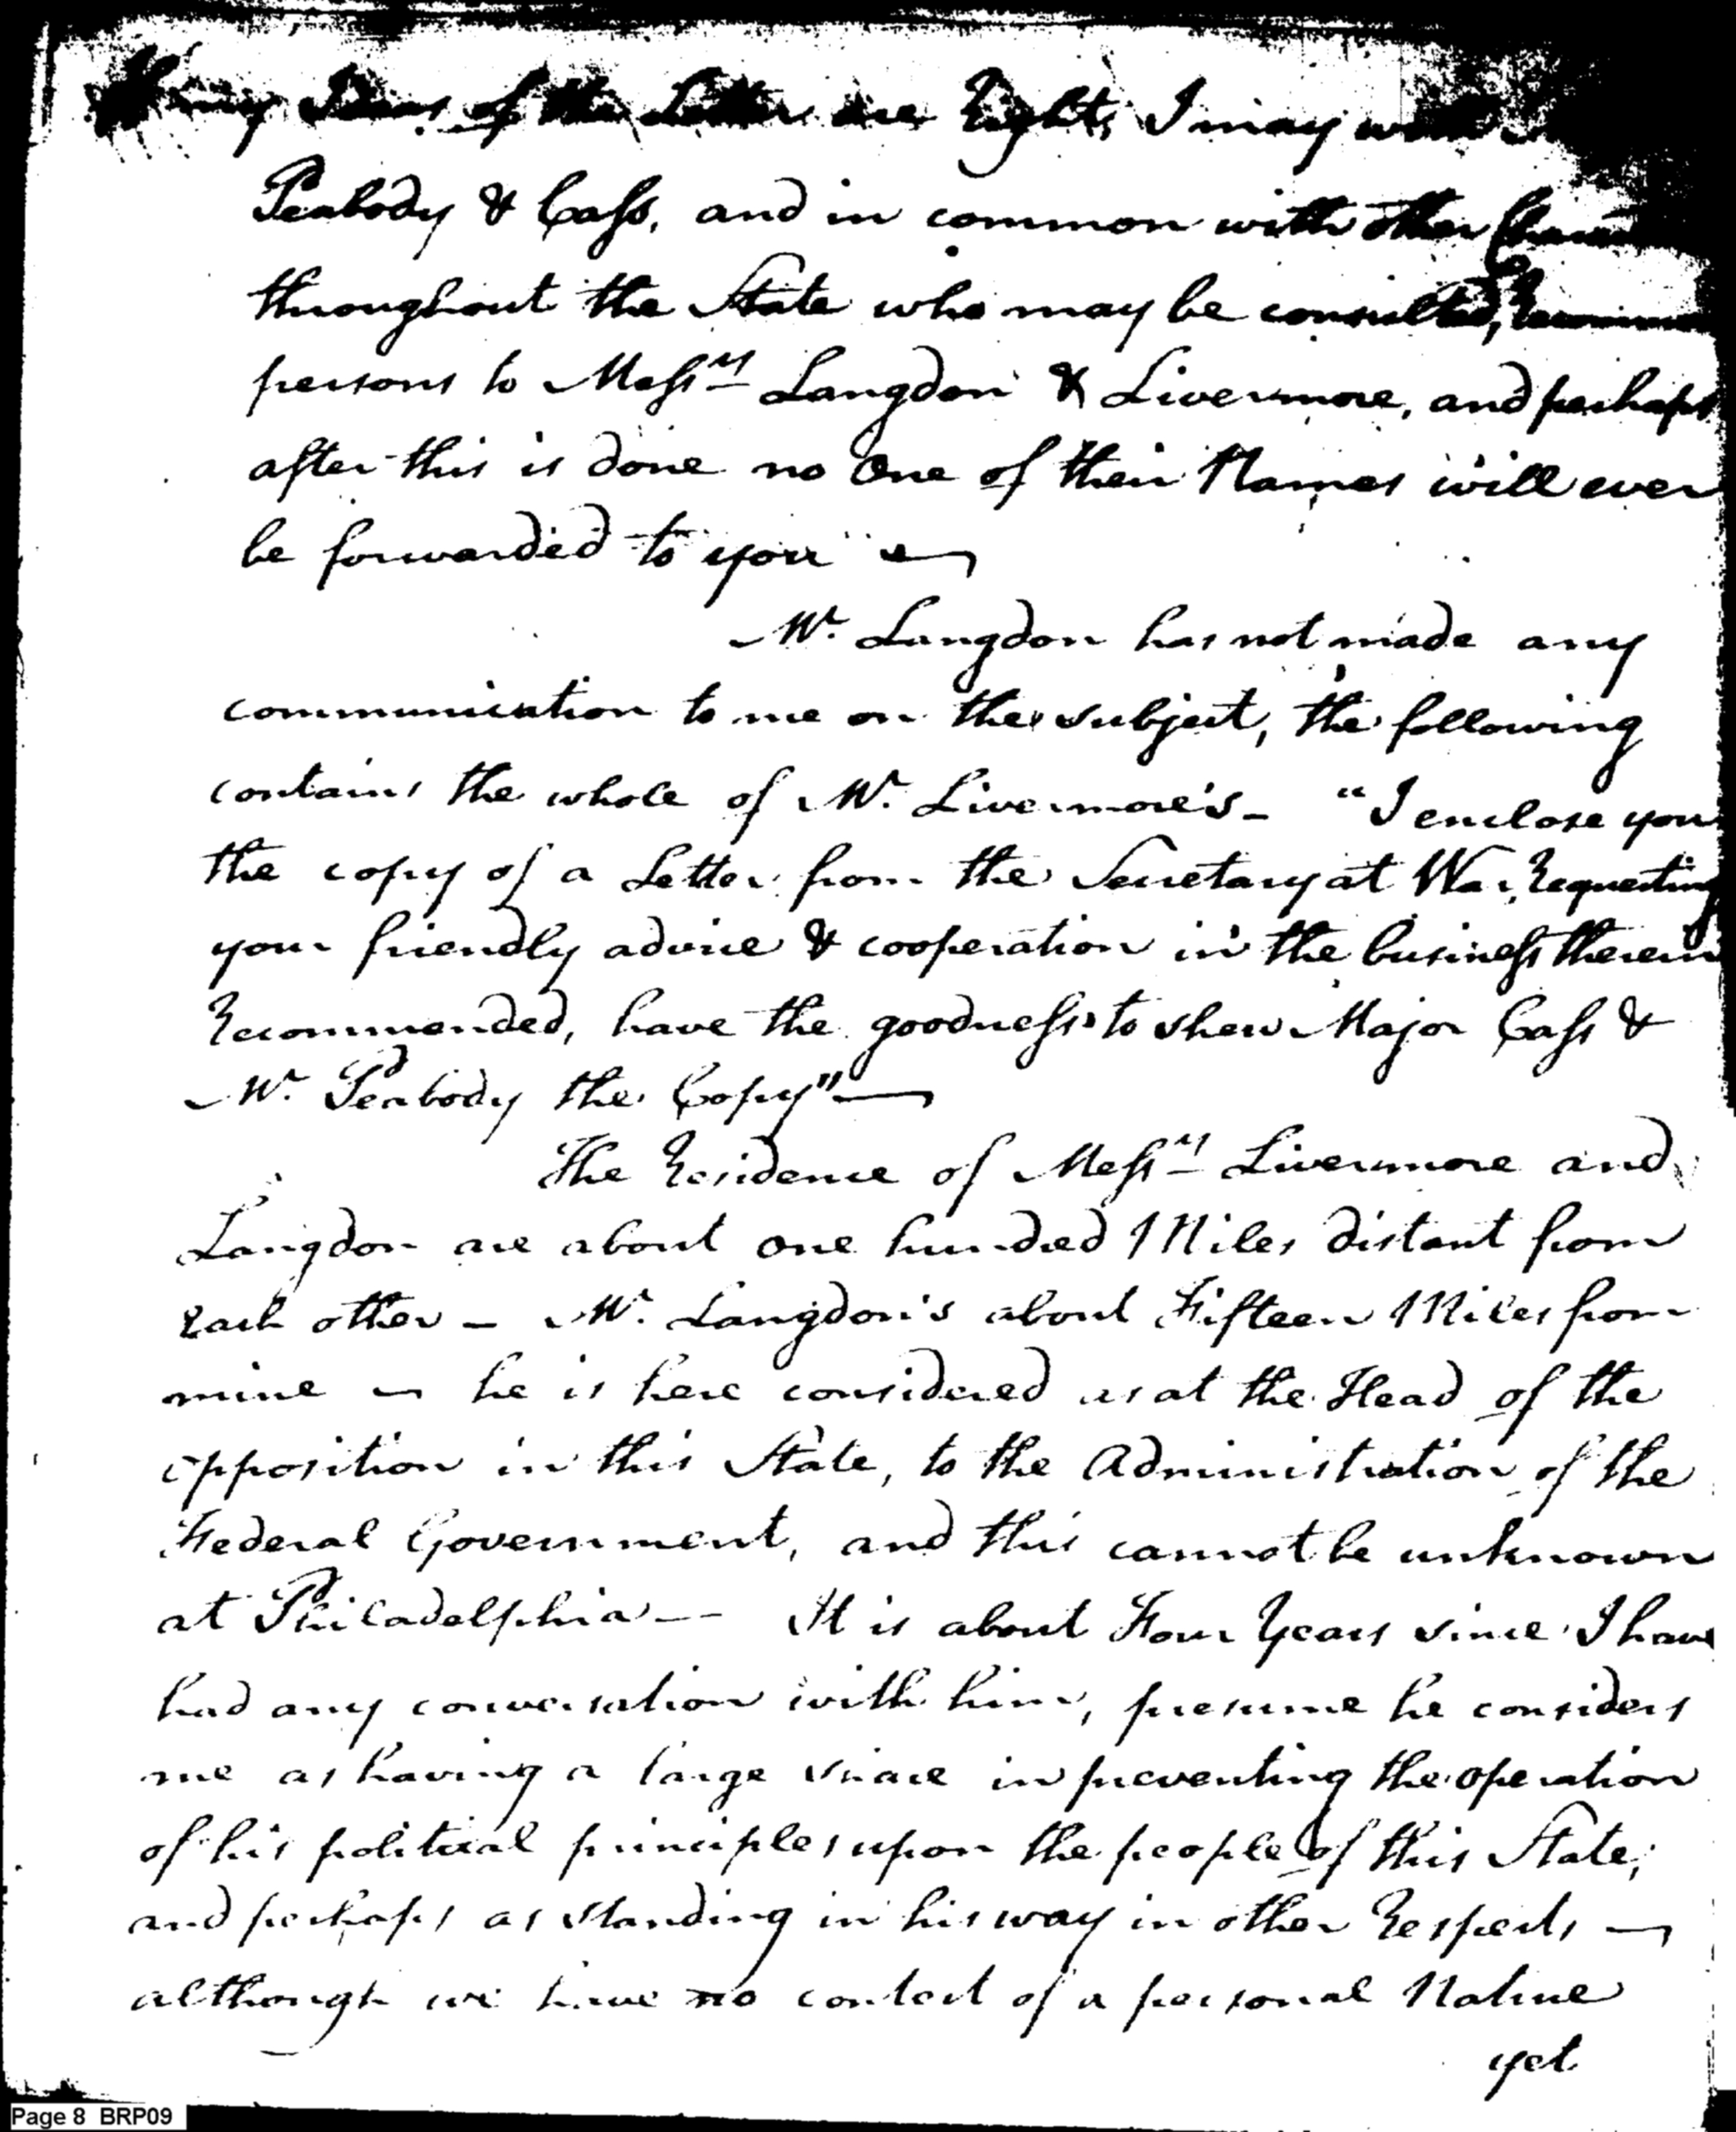 my Ideas of the Letter are Right, I may
Peabody & Cass, and in common with other
throughout the State who may be consulted,
persons to Mess.rs Langdon & Livermore, and perhaps
after this is done no One of their Names will ever
be forwarded to you —
Mr. Langdon has not made any
communication to me on the subject, the following
contains the whole of Mr. Livermore's — "I enclose you
the copy of a Letter from the Secretary at War, Requesting
your friendly advice & cooperation in the business therein
Recommended, have the goodness to shew Major Cass &
Mr. Peabody the Copy" —
The Residence of Mess.rs Livermore and
Langdon are about one hundred Miles distant from
each other — Mr. Langdon's about Fifteen Miles from
mine — he is here considered as at the Head of the
opposition in this State, to the Administration of the
Federal Government, and this cannot be unknown
at Philadelphia — It is about Four Years since I have
had any conversation with him, presume he considers
me as having a large share in preventing the operation
of his political principles upon the people of this State,
and perhaps as standing in his way in other Respects —
although we have no contest of a personal Nature
yet
Page 8 BRP09